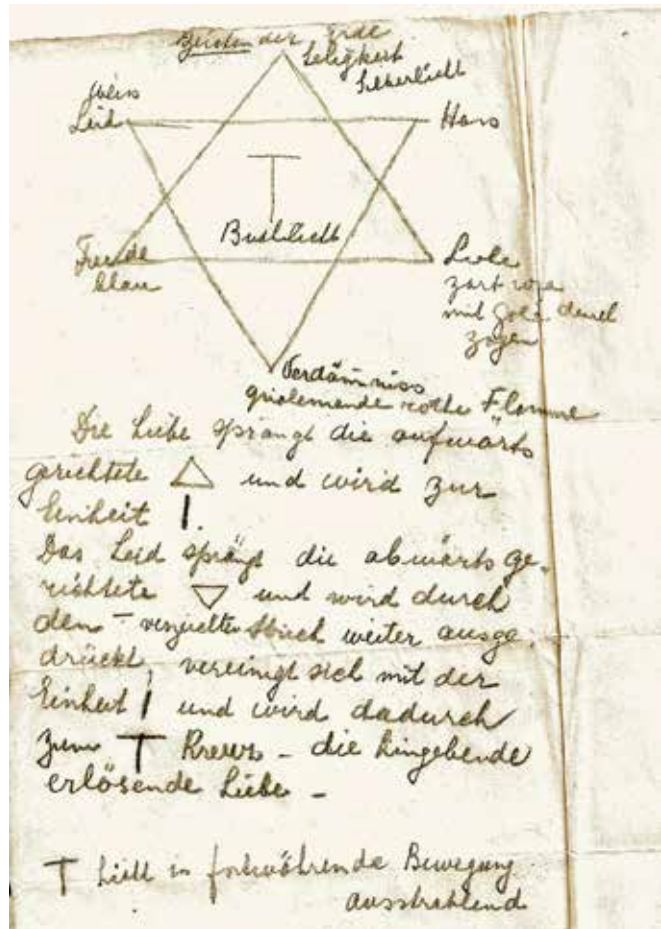 Zeichen der Erde
Seligkeit
Silberlicht
weiss
Leid
Hass
T
Buhllicht
Freude
blau
Liebe
zart rosa
mit Gold durch
zogen
Verdamniss
rothe Flamme
Die Liebe sprängt die aufwärts
gerichtete △ und wird zur
Einheit |.
Das Leid sprägt die abwärts ge-
richtete ▽ und wird durch
den – Strich weiter ausge-
drückt, vereinigt sich mit der
Einheit | und wird dadurch
zum T Kreuz – die hingebende
erlösende Liebe –
T Licht in fortwährende Bewegung
ausstrahlend